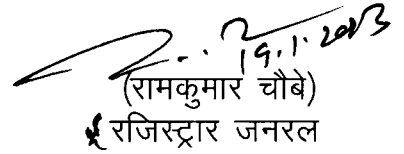 19.1.2023
(रामकुमार चौबे)
रजिस्ट्रार जनरल